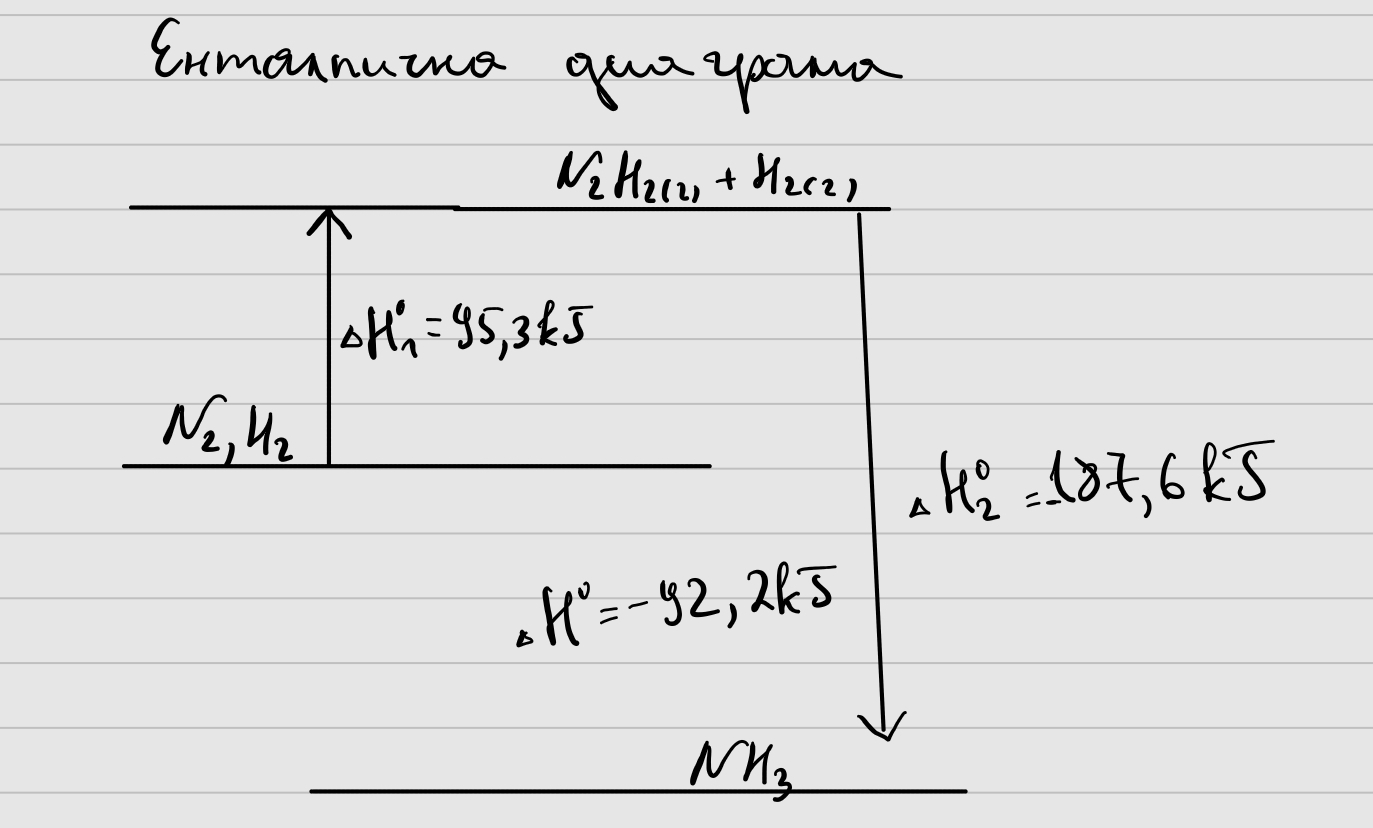 Енталпична диаграма
N₂H₂(г) + H₂(г)
ΔH₁° = 95,3 kJ
N₂, H₂
ΔH₂° = -187,6 kJ
ΔH° = -92,2 kJ
NH₃